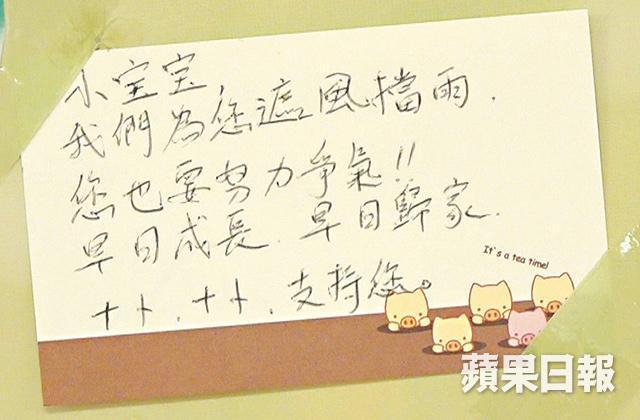 小宝宝,
我們為您遮風擋雨.
您也要努力爭氣!!
早日成長.早日歸家.
十卜.十卜.支持您。
It's a tea time!
蘋果日報